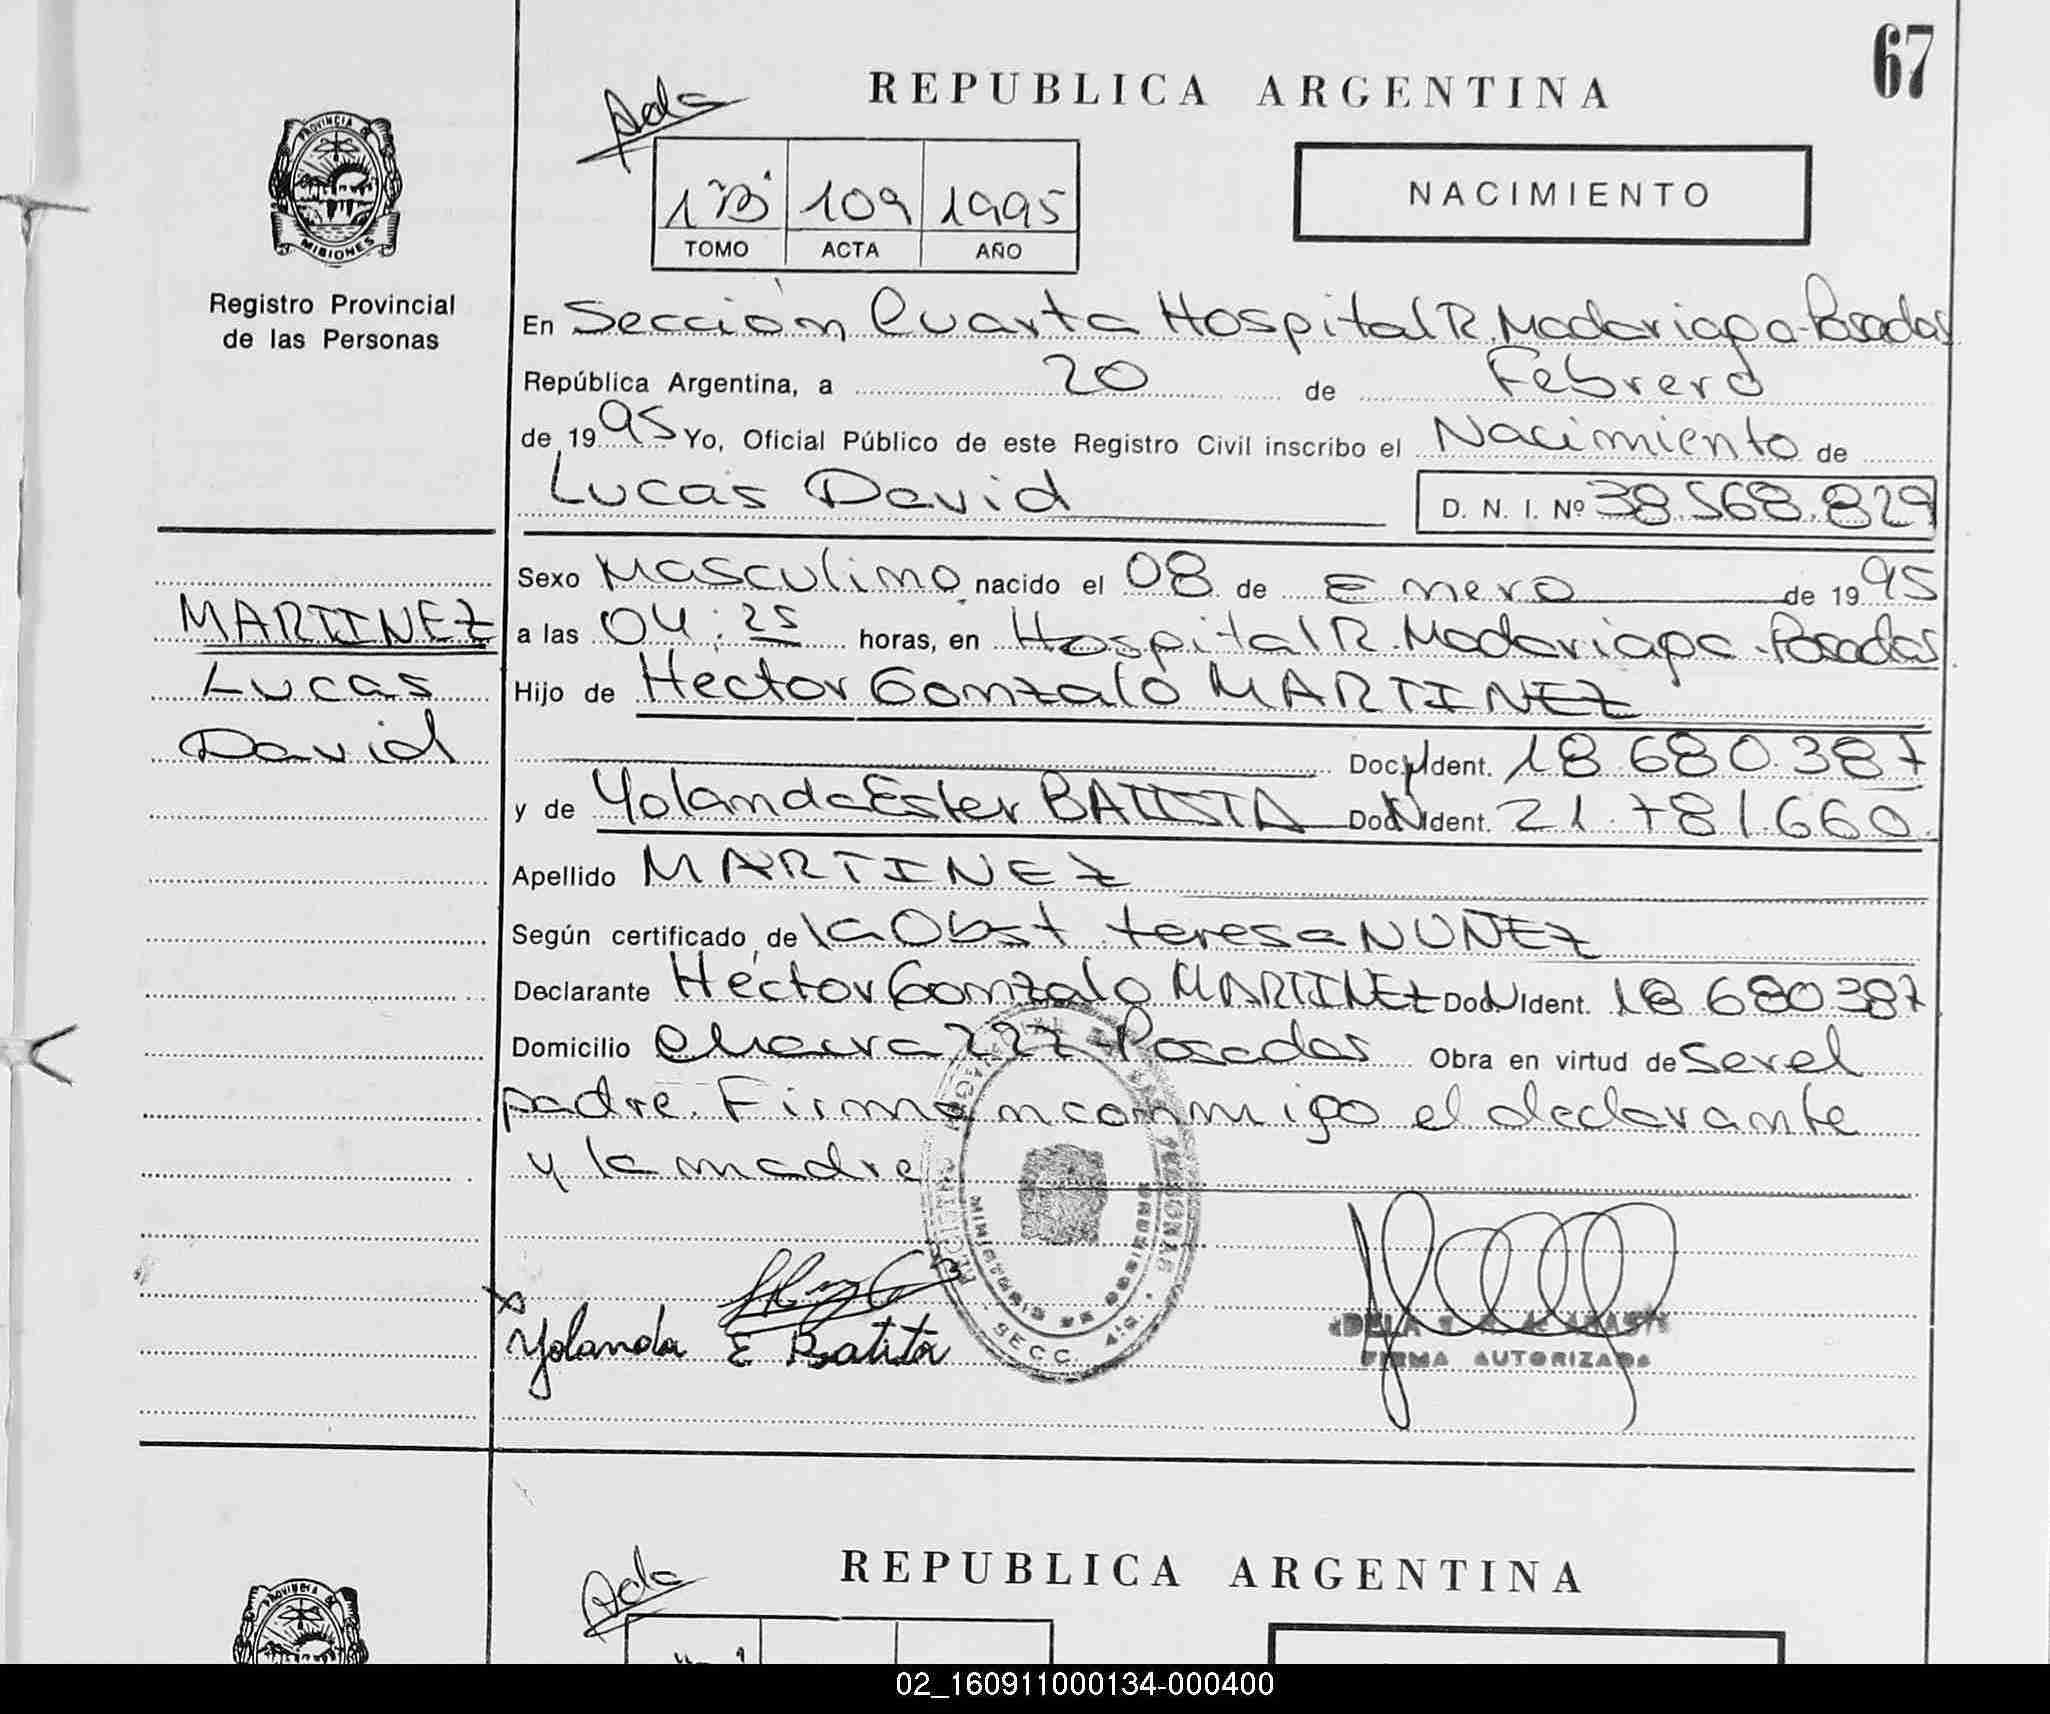 67
REPUBLICA ARGENTINA
Ada
PROVINCIA DE
MISIONES
Registro Provincial
de las Personas
1"B" 109 1995
TOMO ACTA AÑO
NACIMIENTO
En Sección Cuarta Hospital R. Madariaga-Posadas
República Argentina, a 20 de Febrero
de 1995 Yo, Oficial Público de este Registro Civil inscribo el Nacimiento de
Lucas David D. N. I. Nº 38.568.829
MARTINEZ
Lucas
David
Sexo Masculino nacido el 08 de Enero de 1995
a las 04:25 horas, en Hospital R. Madariaga-Posadas
Hijo de Hector Gonzalo MARTINEZ
Doc. N Ident. 18.680.387
y de Yolanda Ester BATISTA Doc. N Ident. 21.781.660
Apellido MARTINEZ
Según certificado de la Obst teresa NUÑEZ
Declarante Héctor Gonzalo MARTINEZ Doc. N Ident. 18.680.387
Domicilio Posadas Obra en virtud de ser el
padre. Firman conmigo el declarante
y la madre
MINISTERIO DE GOBIERNO
SECC. 4ta.
Yolanda E Batita
FIRMA AUTORIZADA
REPUBLICA ARGENTINA
Ada
PROVINCIA DE
02_160911000134-000400